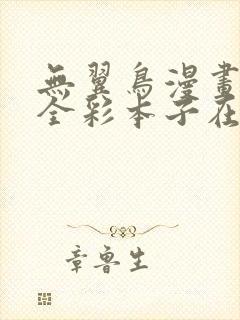 無翼鳥漫畫
全彩本子在
章魯生